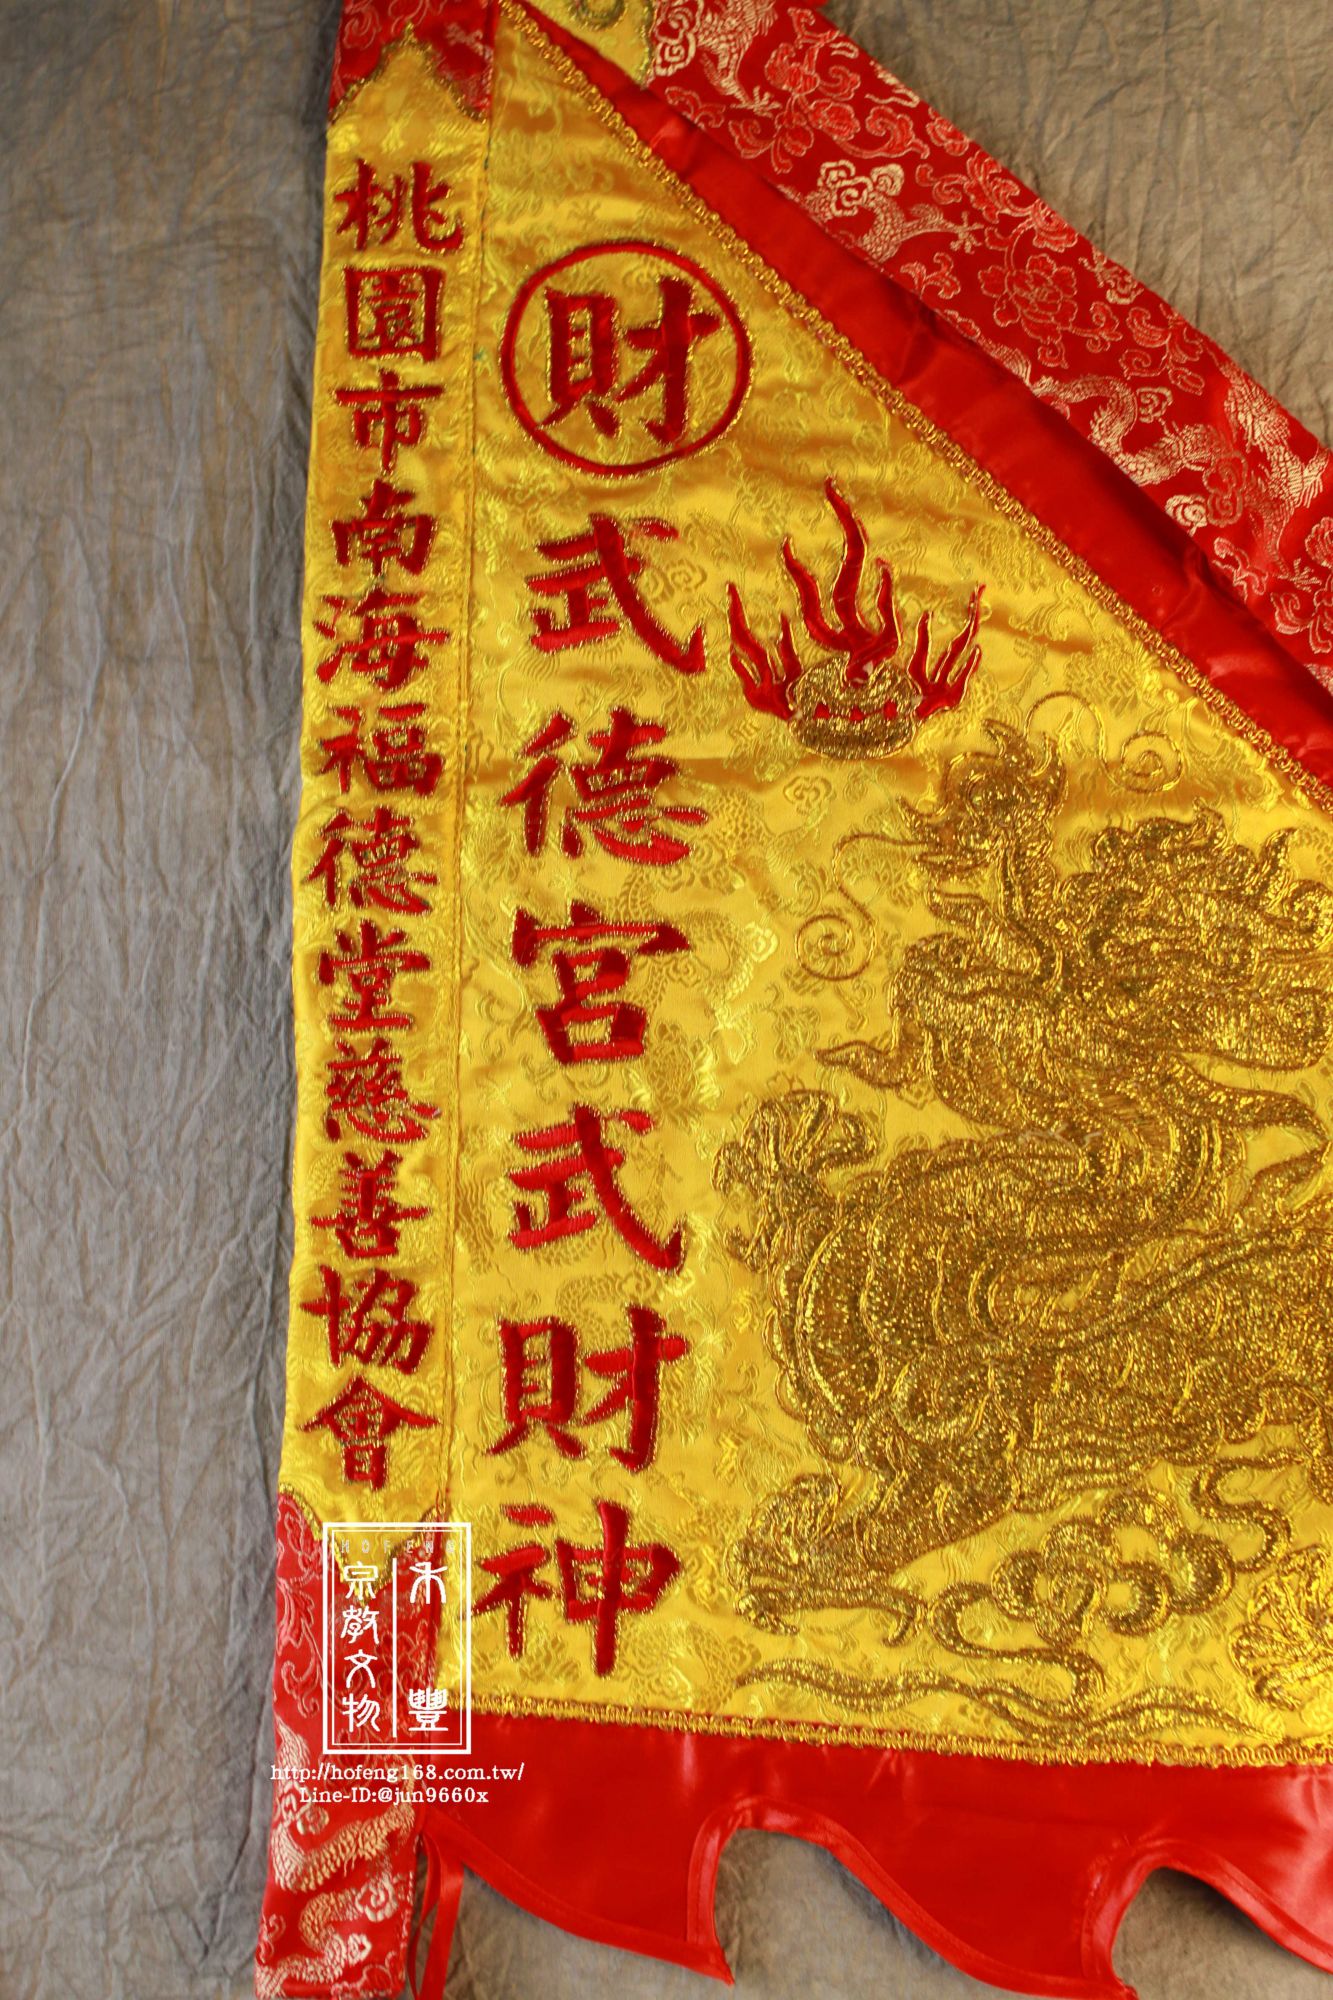 桃園市南海福德堂慈善協會
財
武德宮武財神
HOFENG
永豐
宗教文物
http://hofeng168.com.tw/
Line-ID:@jun9660x